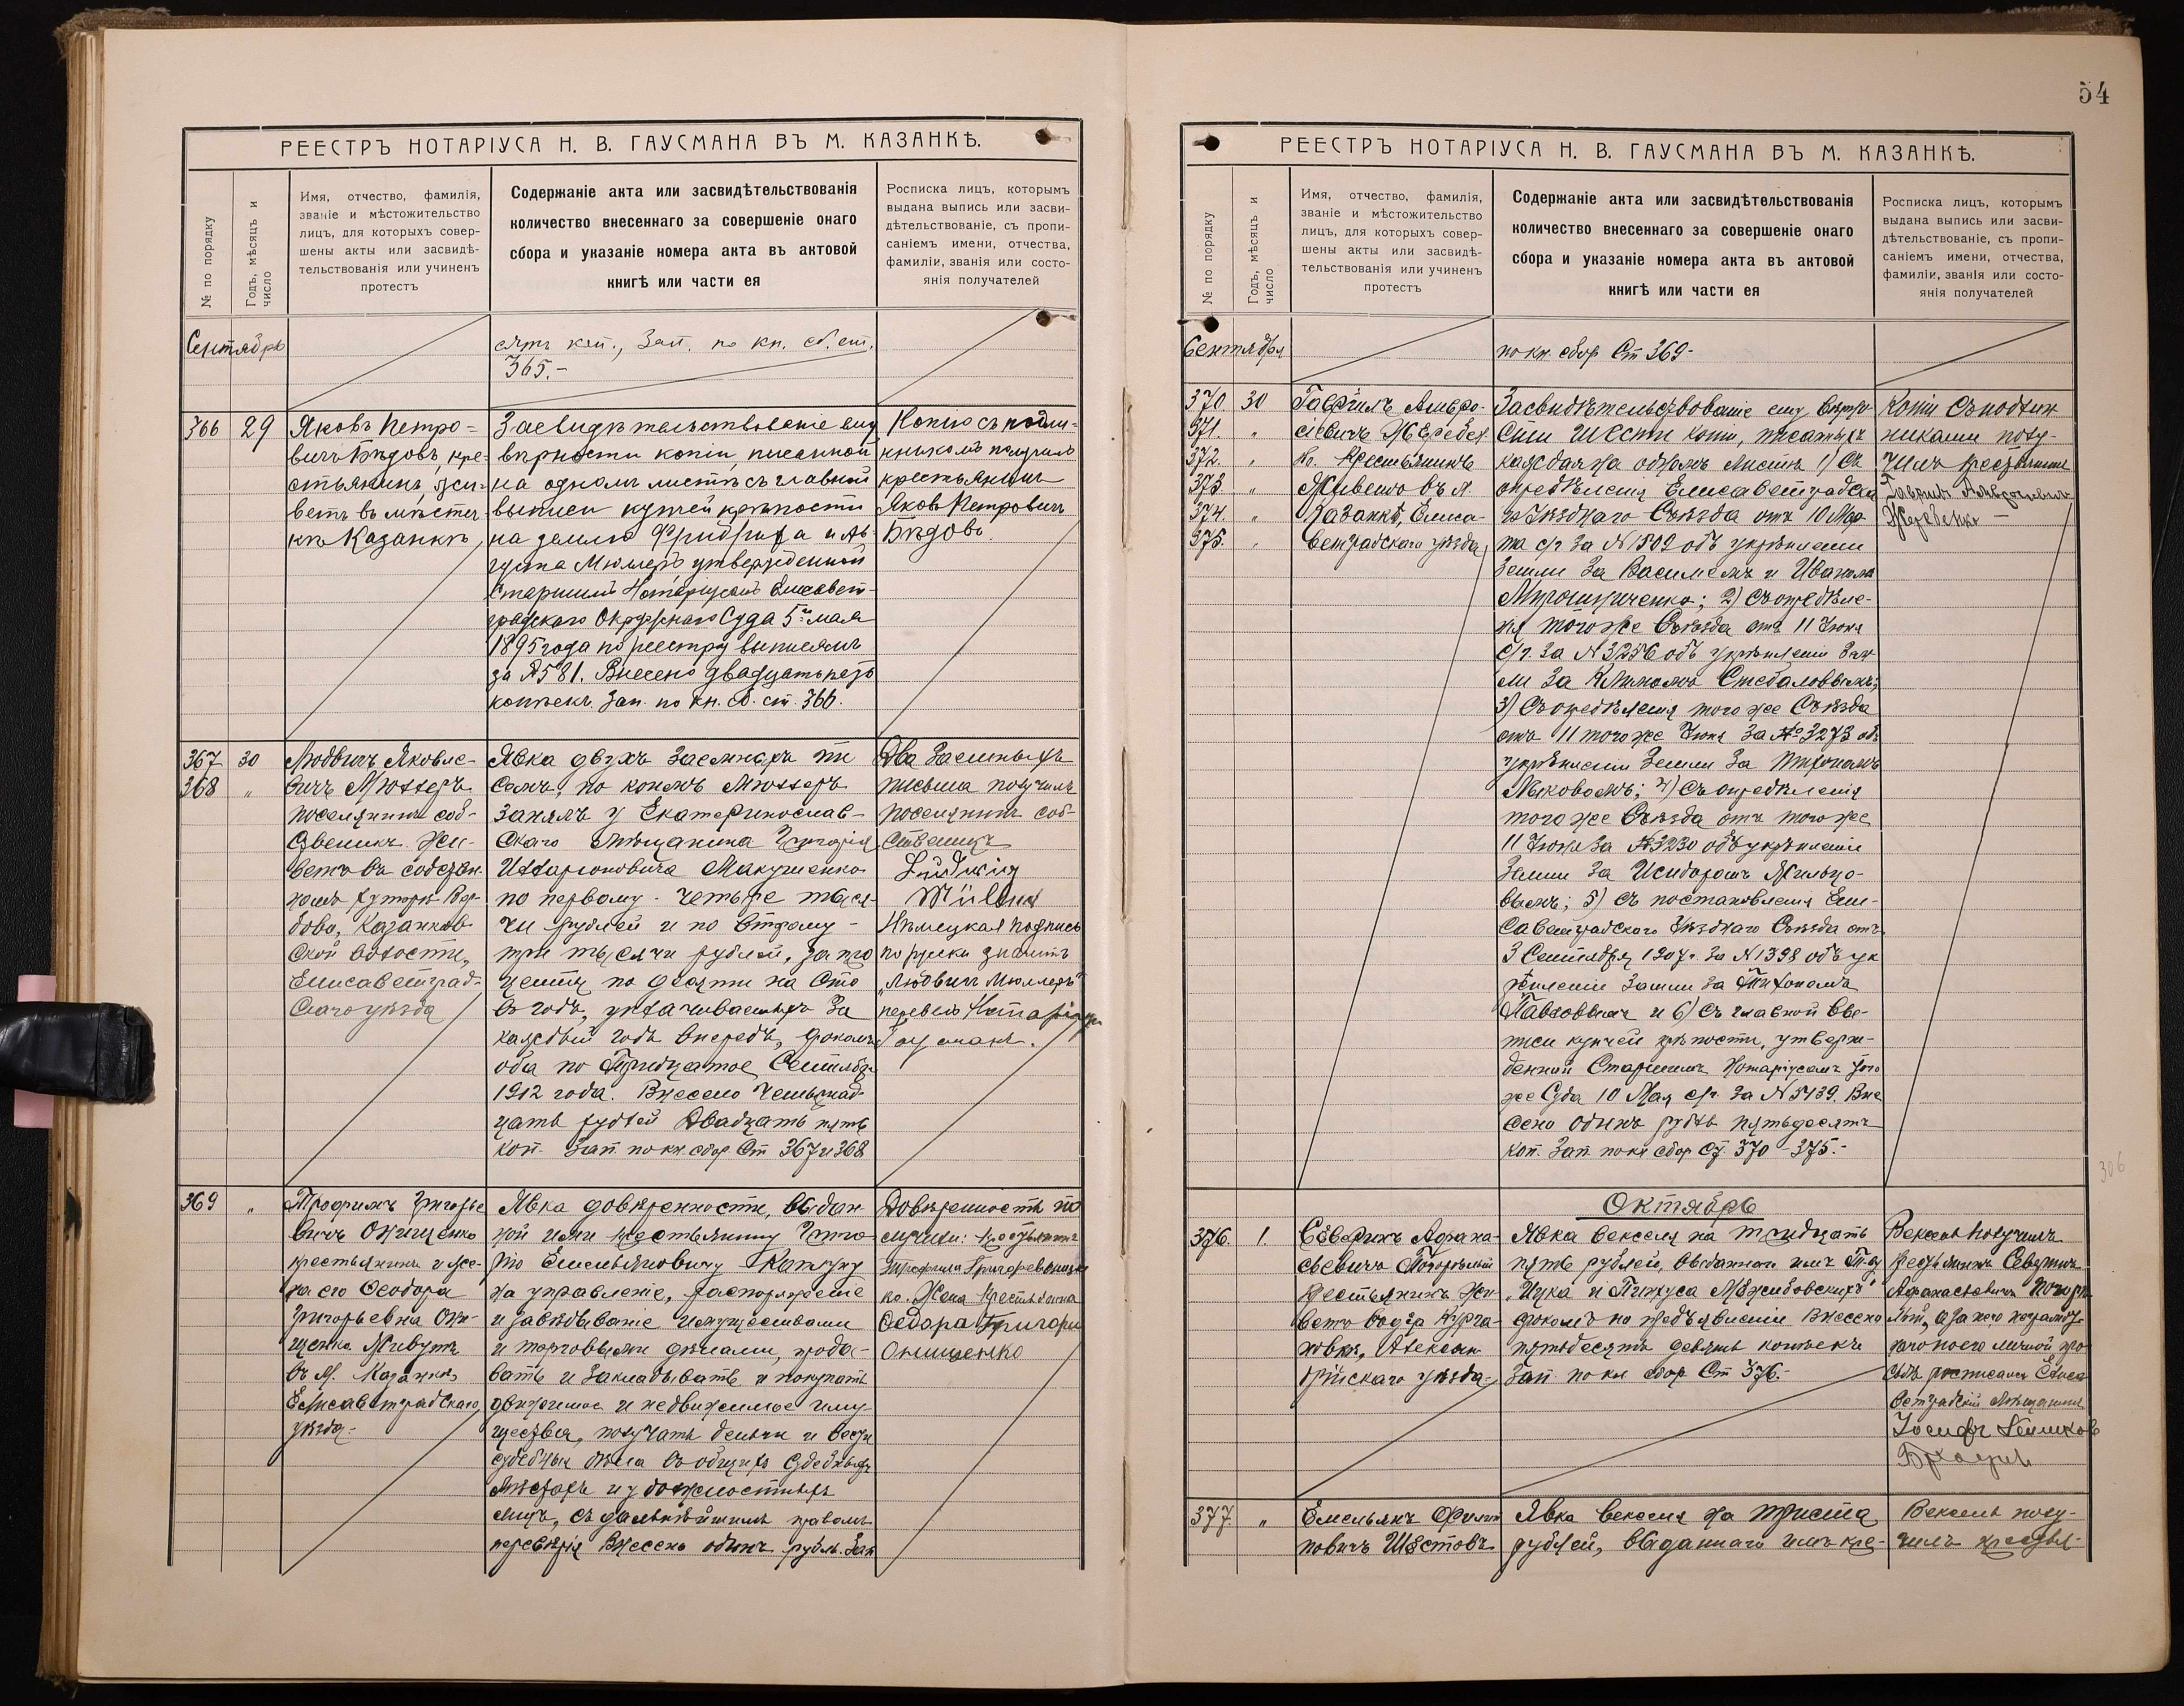 РЕЕСТРЪ НОТАРІУСА Н. В. ГАУСМАНА ВЪ М. КАЗАНКѢ.
№ по порядку
Годъ, мѣсяцъ и
число
Имя, отчество, фамилія,
званіе и мѣстожительство
лицъ, для которыхъ совер-
шены акты или засвидѣ-
тельствованія или учиненъ
протестъ
Содержаніе акта или засвидѣтельствованія
количество внесеннаго за совершеніе онаго
сбора и указаніе номера акта въ актовой
книгѣ или части ея
Росписка лицъ, которымъ
выдана выпись или засви-
дѣтельствованіе, съ пропи-
саніемъ имени, отчества,
фамиліи, званія или состо-
янія получателей
Сентябрь
сятъ коп., Зап. по кн. сб. ст.
365.-
366 29
Яковъ Петро-
вичъ Бѣдовъ, кре-
стьянинъ, жи-
ветъ въ мѣстеч-
кѣ Казанкѣ,
Засвидѣтельствованіе ему
вѣрности копіи, писанной
на одномъ листѣ съ главной
выписи купчей крѣпости
на землю Фридриха и Ав-
густа Мюллеръ утвержденной
Старшимъ Нотаріусомъ Елисавет-
градскаго Окружнаго Суда 5го мая
1895 года по реестру выписямъ
за №581. Внесено двадцать пять
копѣекъ. Зап. по кн. сб. ст. 366.
Копію съ подлин-
никомъ получилъ
крестьянинъ
Яковъ Петровичъ
Бѣдовъ.
367 30
368 "
Людвигъ Яковле-
вичъ Мюллеръ
поселянинъ соб-
ственикъ жи-
ветъ въ собствен-
номъ хуторѣ
Казанков-
ской волости,
Елисаветград-
скаго уѣзда
Явка двухъ заемныхъ пи
семъ, по коимъ Мюллеръ
занялъ у Екатеринослав-
скаго мѣщанина Григорія
Илларіоновича Макушенко
по первому - четыре тыся-
чи рублей и по второму -
три тысячи рублей, за про
центы по девяти на сто
въ годъ, уплачиваемыхъ за
каждый годъ впередъ, срокомъ
оба по Тридцатое Сентября
1912 года. Внесено Четырнад-
цать рублей Двадцать пять
коп. Зап. по кн. сбор. Ст 367 и 368
Два Заемныхъ
письма получилъ
поселянинъ соб-
ственикъ
Ludwig
Müller
Нѣмецкая подпись
по русски значитъ
„Людвигъ Мюллеръ"
перевелъ Нотаріусъ
Гаусманъ.
369 "
Трофимъ Григорье
вичъ Онищенко
крестьянинъ и же-
на его Феодора
Григорьевна Они-
щенко живутъ
въ М. Казанкѣ,
Елисаветградскаго,
уѣзда-
Явка довѣренности, выдан
ной ими крестьянину Григо
рію Емельяновичу
на управленіе, распоряженіе
и завѣдываніе имуществами
и торговыми дѣлами, прода-
вать и закладывать и покупать
движимое и недвижимое иму-
щества, получать деньги и вести
судебныя дѣла въ общихъ судебныхъ
мѣстахъ и у должностныхъ
лицъ, съ дальнѣйшимъ правомъ
передовѣрія Внесено одинъ рубль. Зап
Довѣренность по
лучили: крестьянинъ
Трофимъ Григорев Онищен
ко. Жена крестьянина
Федара Григори
Онищенко
54
РЕЕСТРЪ НОТАРІУСА Н. В. ГАУСМАНА ВЪ М. КАЗАНКѢ.
№ по порядку
Годъ, мѣсяцъ и
число
Имя, отчество, фамилія,
званіе и мѣстожительство
лицъ, для которыхъ совер-
шены акты или засвидѣ-
тельствованія или учиненъ
протестъ
Содержаніе акта или засвидѣтельствованія
количество внесеннаго за совершеніе онаго
сбора и указаніе номера акта въ актовой
книгѣ или части ея
Росписка лицъ, которымъ
выдана выпись или засви-
дѣтельствованіе, съ пропи-
саніемъ имени, отчества,
фамиліи, званія или состо-
янія получателей
Сентября
по кн. сбор Ст 369-
370. 30
371. "
372. "
373. "
374. "
375. "
Гавріилъ Амвро-
сіевичъ Жеребен
ко Крестьянинъ
Живетъ въ м.
Казанкѣ, Елиса-
ветградскаго уѣзда,
Засвидѣтельствованіе ему вѣрно-
сти шести копій, писаныхъ
каждая на одномъ листѣ 1) Съ
опредѣленія Елисаветградска
го Уѣзднаго Съѣзда отъ 10 Мар-
та с/г за №1509 объ укрѣпленіи
земли за Василіемъ и Иваномъ
Мирошниченко; 2) Съ опредѣле-
нія того же Съѣзда отъ 11 Іюня
с/г. за №3256 объ укрѣпленіи зем-
ли за
3) Съ опредѣленія того же Съѣзда
отъ 11 того же Іюня за №3273 объ
укрѣпленіи Земли за Тихономъ
4) Съ опредѣленія
того же Съѣзда отъ того же
11 Іюня за №3230 объ укрѣпленіи
Земли за Исидоромъ
5) съ постановленія Ели-
саветградскаго Уѣзднаго Съѣзда отъ
3 Сентября 1907 г. за №1398 объ ук
рѣпленіи Земли за Тихономъ
Павловымъ и 6) Съ главной вы-
писи купчей крѣпости, утверж-
денной Старшимъ Нотаріусомъ того
же Суда 10 Мая с/г. за №5439. Вне
сено одинъ рубль пятьдесятъ
коп. Зап по кн сбор ст. 370-375.-
Копіи съ подлин
никами полу-
чилъ крестьянинъ
Гаврилъ Амвросіевичъ
Жеребенко -
306
Октябрь
376. 1.
Северинъ Афана-
сьевичъ Погорѣлый
Крестьянинъ Жи-
ветъ
Алексан
дрійскаго уѣзда-
Явка векселя на тридцать
пять рублей, выданнаго имъ
„Ицка и Пинхуса Межибовскихъ"
срокомъ по предъявленіи Внесено
пятьдесятъ девять копѣекъ
Зап. по кн сбор Ст 376.-
Вексель получилъ
крестьянинъ Северинъ
Афанасьевичъ Погорѣ
лый, а за него неграмот-
наго по его личной про
сьбѣ росписался Елиса
ветградскій мѣщанинъ
Іосифъ
377. "
Емельянъ Филип
повичъ Шестовъ
Явка векселя на триста
рублей, выданнаго имъ кре-
Вексель полу-
чилъ крестья-